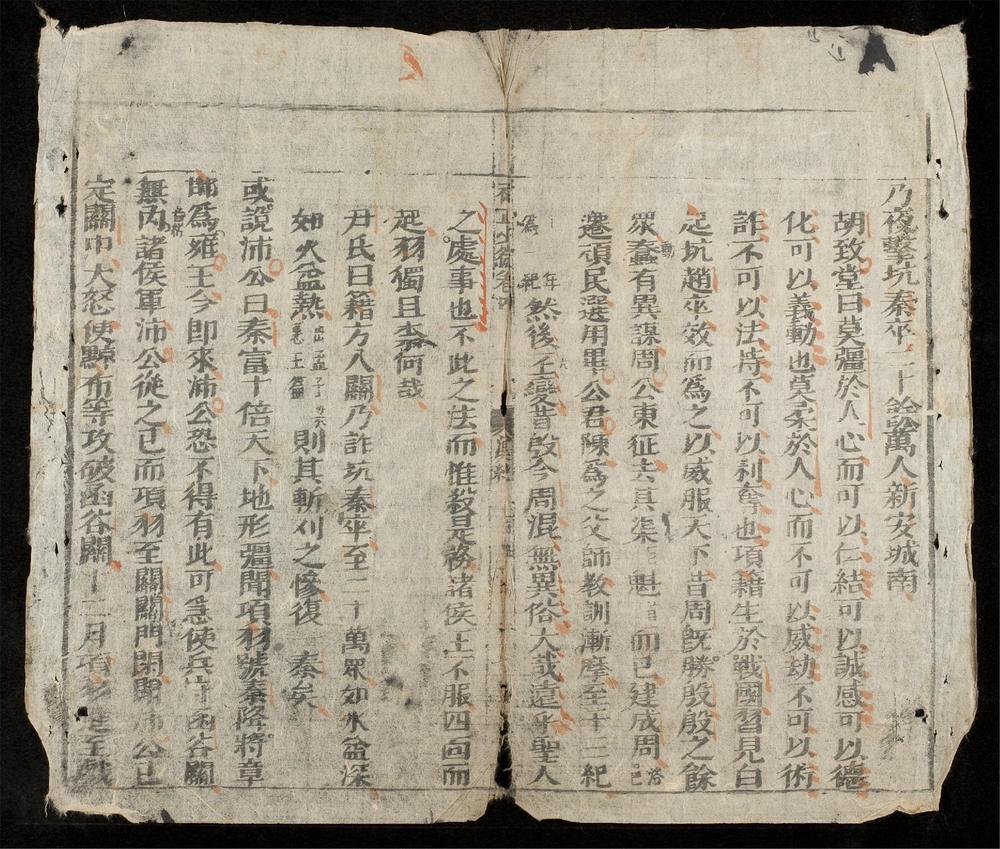 乃夜擊坑秦卒二十餘萬人新安城南
胡致堂曰莫彊於人心而可以仁結可以誠感可以德
化可以義動也莫柔於人心而不可以威劫不可以術
詐不可以法持不可以利奪也項籍生於戰國習見白
起坑趙卒效而爲之以威服天下昔周旣勝殷殷之餘
衆蠢動有異謀周公東征去其渠魁而已建成周洛邑
遷頑民選用畢公君陳爲之父師敎訓漸摩至十二紀
年爲一紀然後丕變昔殷今周混無異俗大哉遠乎聖人
之處事也不此之法而惟殺是務諸侯王不服四面而
起羽獨且柰何哉
尹氏曰籍方入關乃詐坑秦卒至二十萬衆如水益深
如火益熱出孟子梁惠王篇則其斬刈之慘復秦矣
或說沛公曰秦富十倍天下地形彊聞項羽號秦降將章
邯爲雍王今卽來沛公恐不得有此可急使兵守函谷關
無內諸侯軍沛公從之已而項羽至關關門閉聞沛公已
定關中大怒使黥布等攻破函谷關十二月項羽進至戲